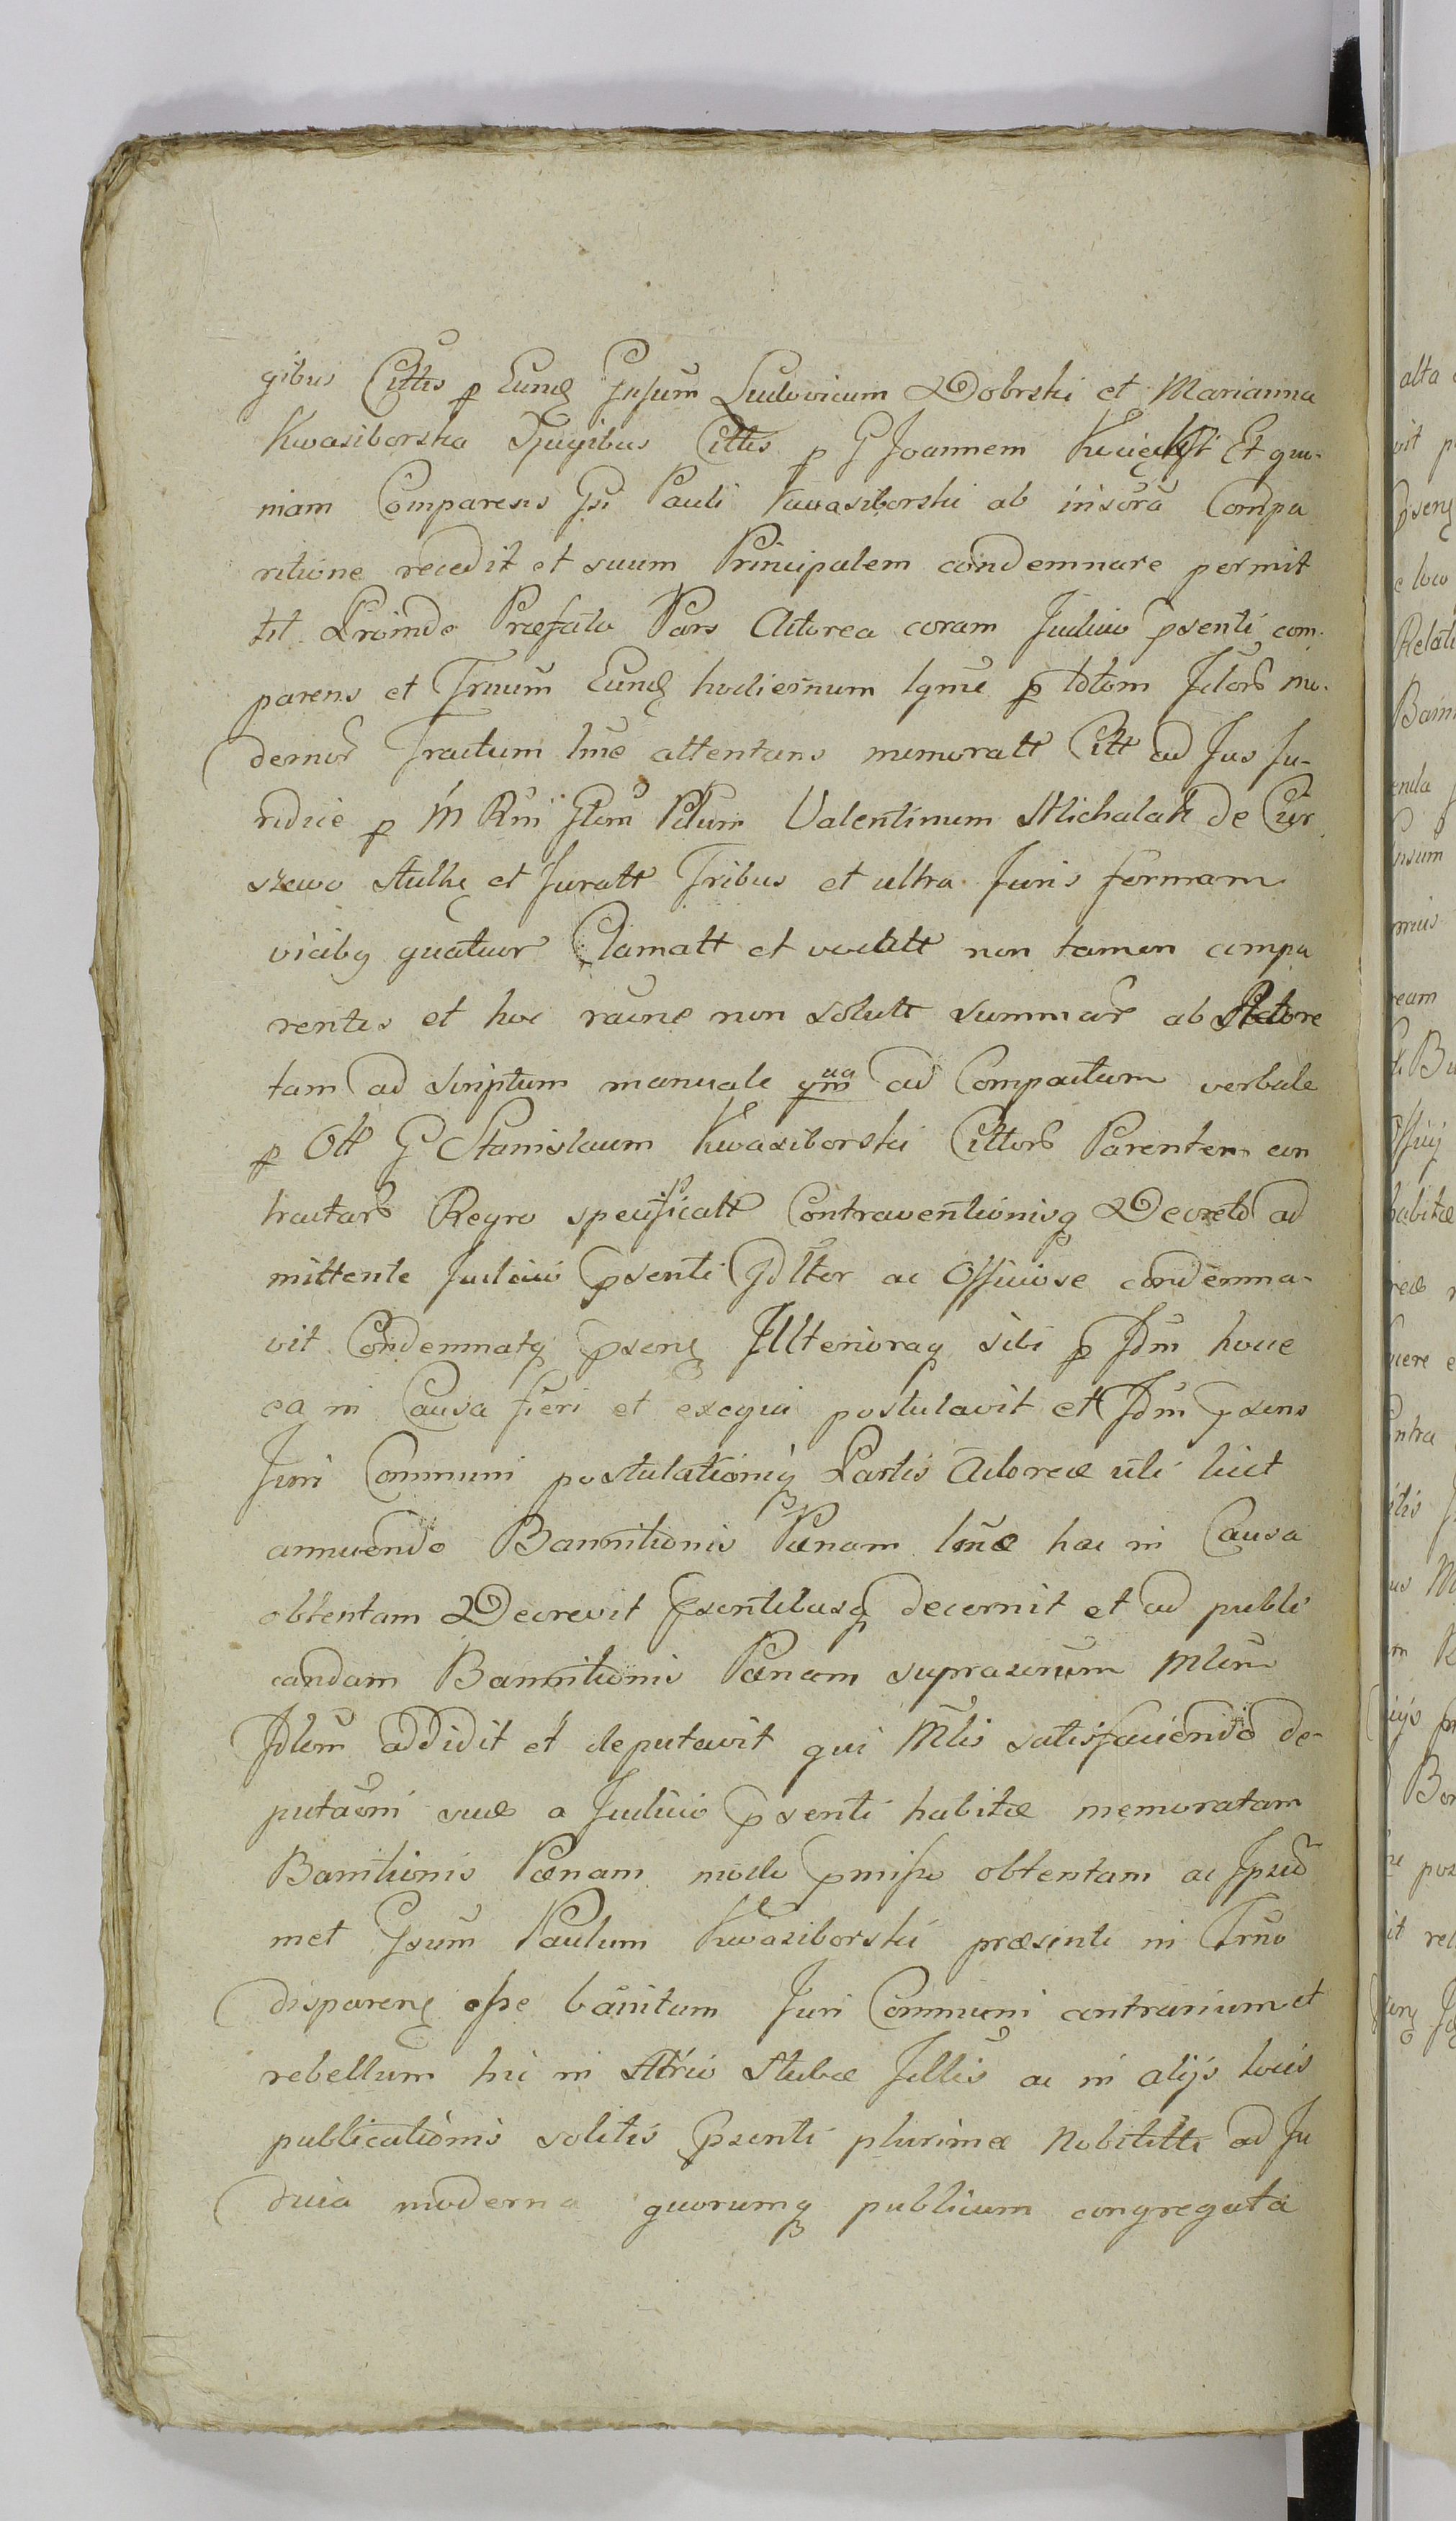 gibus Cittis p Eund Gnsum Ludovicum Dobrski et Marianna
Kwasiborska Cjugibus Cittis p G Joannem Et quo-
niam Comparens Gsi Pauli Kwasiborski ab insora Compa
ritione recedit et suum Principalem condemnare permit
tit. Proinde Præfata Pars Actorea coram Judicio psenti com-
parens et Trnum Eund hodiernum lgme p totum Jdlorb mo-
dernor Tractum lme attentans memoratt Citt ad Jus Ju-
ridice p M Rni Gtem Pdum Valentinum Michalak de Cur
szewo et Juratt Tribus et ultra Juris formam
vicibq quatuor Clamatt et vocatt non tamen compa
rentes et hoc raõne non solutt summar ab Actore
tam ad scriptum manuale qm ad Compactum verbale
p Ott G Stanislaum Kwasiborski Cittorb Parentem con
tractarb Regro specificatt Contraventionisq Decreto ad
mittente Judicio psenti Jdltor ac Officiose condemna-
vit Condemnatq psenq Ulterioraq sibi p Jdm hocce
ea in Causa fieri et exequi postulavit et Jdm psens
Juri Communi postulationiq Partis Actoreæ uti licet
annuendo Bannitionis Pænam lmæ hac in Causa
obtentam Decrevit psentibusq decernit et ad publi
candam Bannitionis Pænam suprasenum Mlem
Jdlem addidit et deputavit qui Mtis satisfaciendo de-
putaõni suæ a Judicio psenti habitæ memoratam
Banitionis Pænam modo pmisso obtentam ac Jpsu
met Gsum Paulum Kwasiborski præsente in Trno
disparenq esse banitum Juri Communi contrarium et
rebellum hic in Atrio Stubæ Jllis ac in alijs locis
publicationis solitis psenti plurimæ Nobilitti ad Ju
dicia moderna quorumq publicum congregata